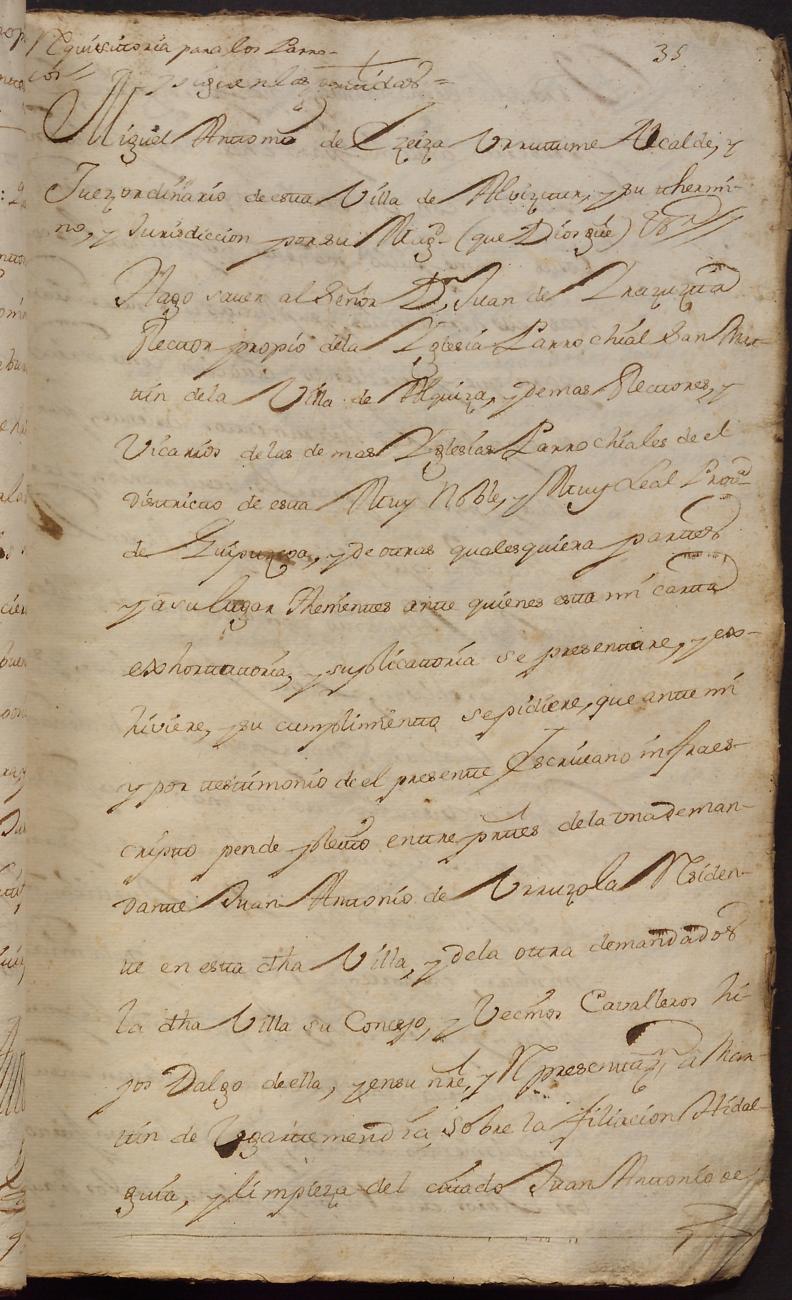 Requisitoria para los Parro-
cos
35
y siguen las partidas =
Miguel Antonio de Lzeiza Urrutume Alcalde, y
Juez ordinario de esta Villa de Alviztur, y su thermi-
no, y Jurisdiccion por su Magd. (que Dios gûe)
Hago saver al Señor D. Juan de Yrazuzta
Rector propio dela Yglesia Parrochial San Mar-
tin dela Villa de Alquiza, y demas Rectores, y
Vicarios delas demas Yglesias Parrochiales de el
districto de esta Muy Noble, y Muy Leal Prova
de Guipuzcoa, y de otras qualesquiera partes
y a su lugar thenientes ante quienes esta mi carta
exhortatoria, y suplicatoria se presentare, y ex-
hiviere, y su cumplimento se pidiere, que ante mi
y por testimonio de el presente Escrivano infraes-
cripto pende pleito entre prtes dela una deman-
dante Juan Antonio de Urruzola Residen-
te en esta dha Villa, y dela otra demandados
la dha Villa su Concejo, y Vecinos Cavalleros hi-
jos Dalgo de ella, y en su nre, y Representazn a Mar-
tin de Ugartemendia, sobre la filiacion Hidal-
guia, y limpieza del citado Juan Antonio de